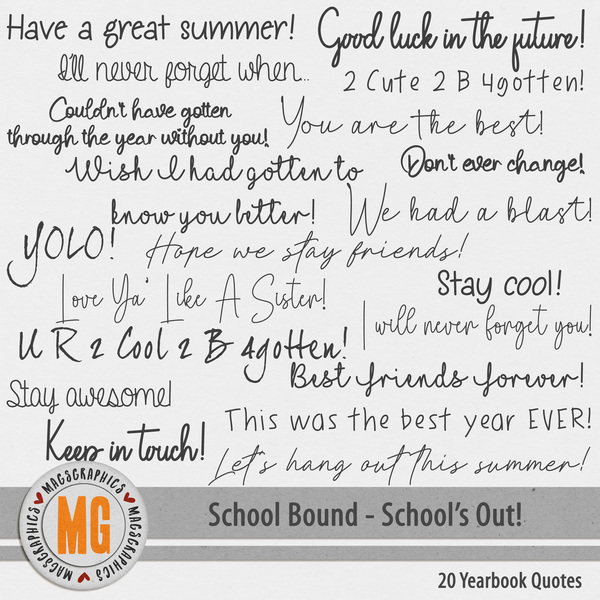 Have a great summer!
Good luck in the future!
I'll never forget when...
2 Cute 2 B 4gotten!
Couldn't have gotten
through the year without you!
You are the best!
Wish I had gotten to
know you better!
Don't ever change!
We had a blast!
YOLO!
Hope we stay friends!
Love Ya' Like A Sister!
Stay cool!
I will never forget you!
U R 2 Cool 2 B 4gotten!
Best friends forever!
Stay awesome!
This was the best year EVER!
Keep in touch!
Let's hang out this summer!
MAGSGRAPHICS
MAGSGRAPHICS
MAGSGRAPHICS
MG
School Bound - School's Out!
20 Yearbook Quotes